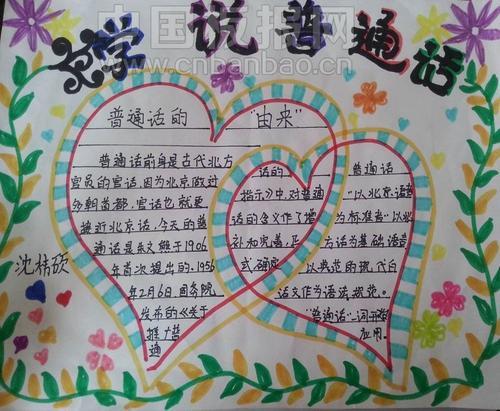 学说普通话
中国板报网
www.cnbanbao.cn
普通话的"由来"
普通话前身是古代北方
官员的官话,因为北京做过
多朝首都,官话也就更
接近北京话。今天的普
通话是朱文熊于1906
年首次提出的.1956
年2月6日国务院
发布的《关于
推广普
通
话的
指示》中,对普通
话的含义作了增
补和完善,正
式确定
普通话
"以北京语音
为标准音"以北
方话为基础语音
以典范的现代白
话文作为语法规范。
"普通话"一词开始
应用。